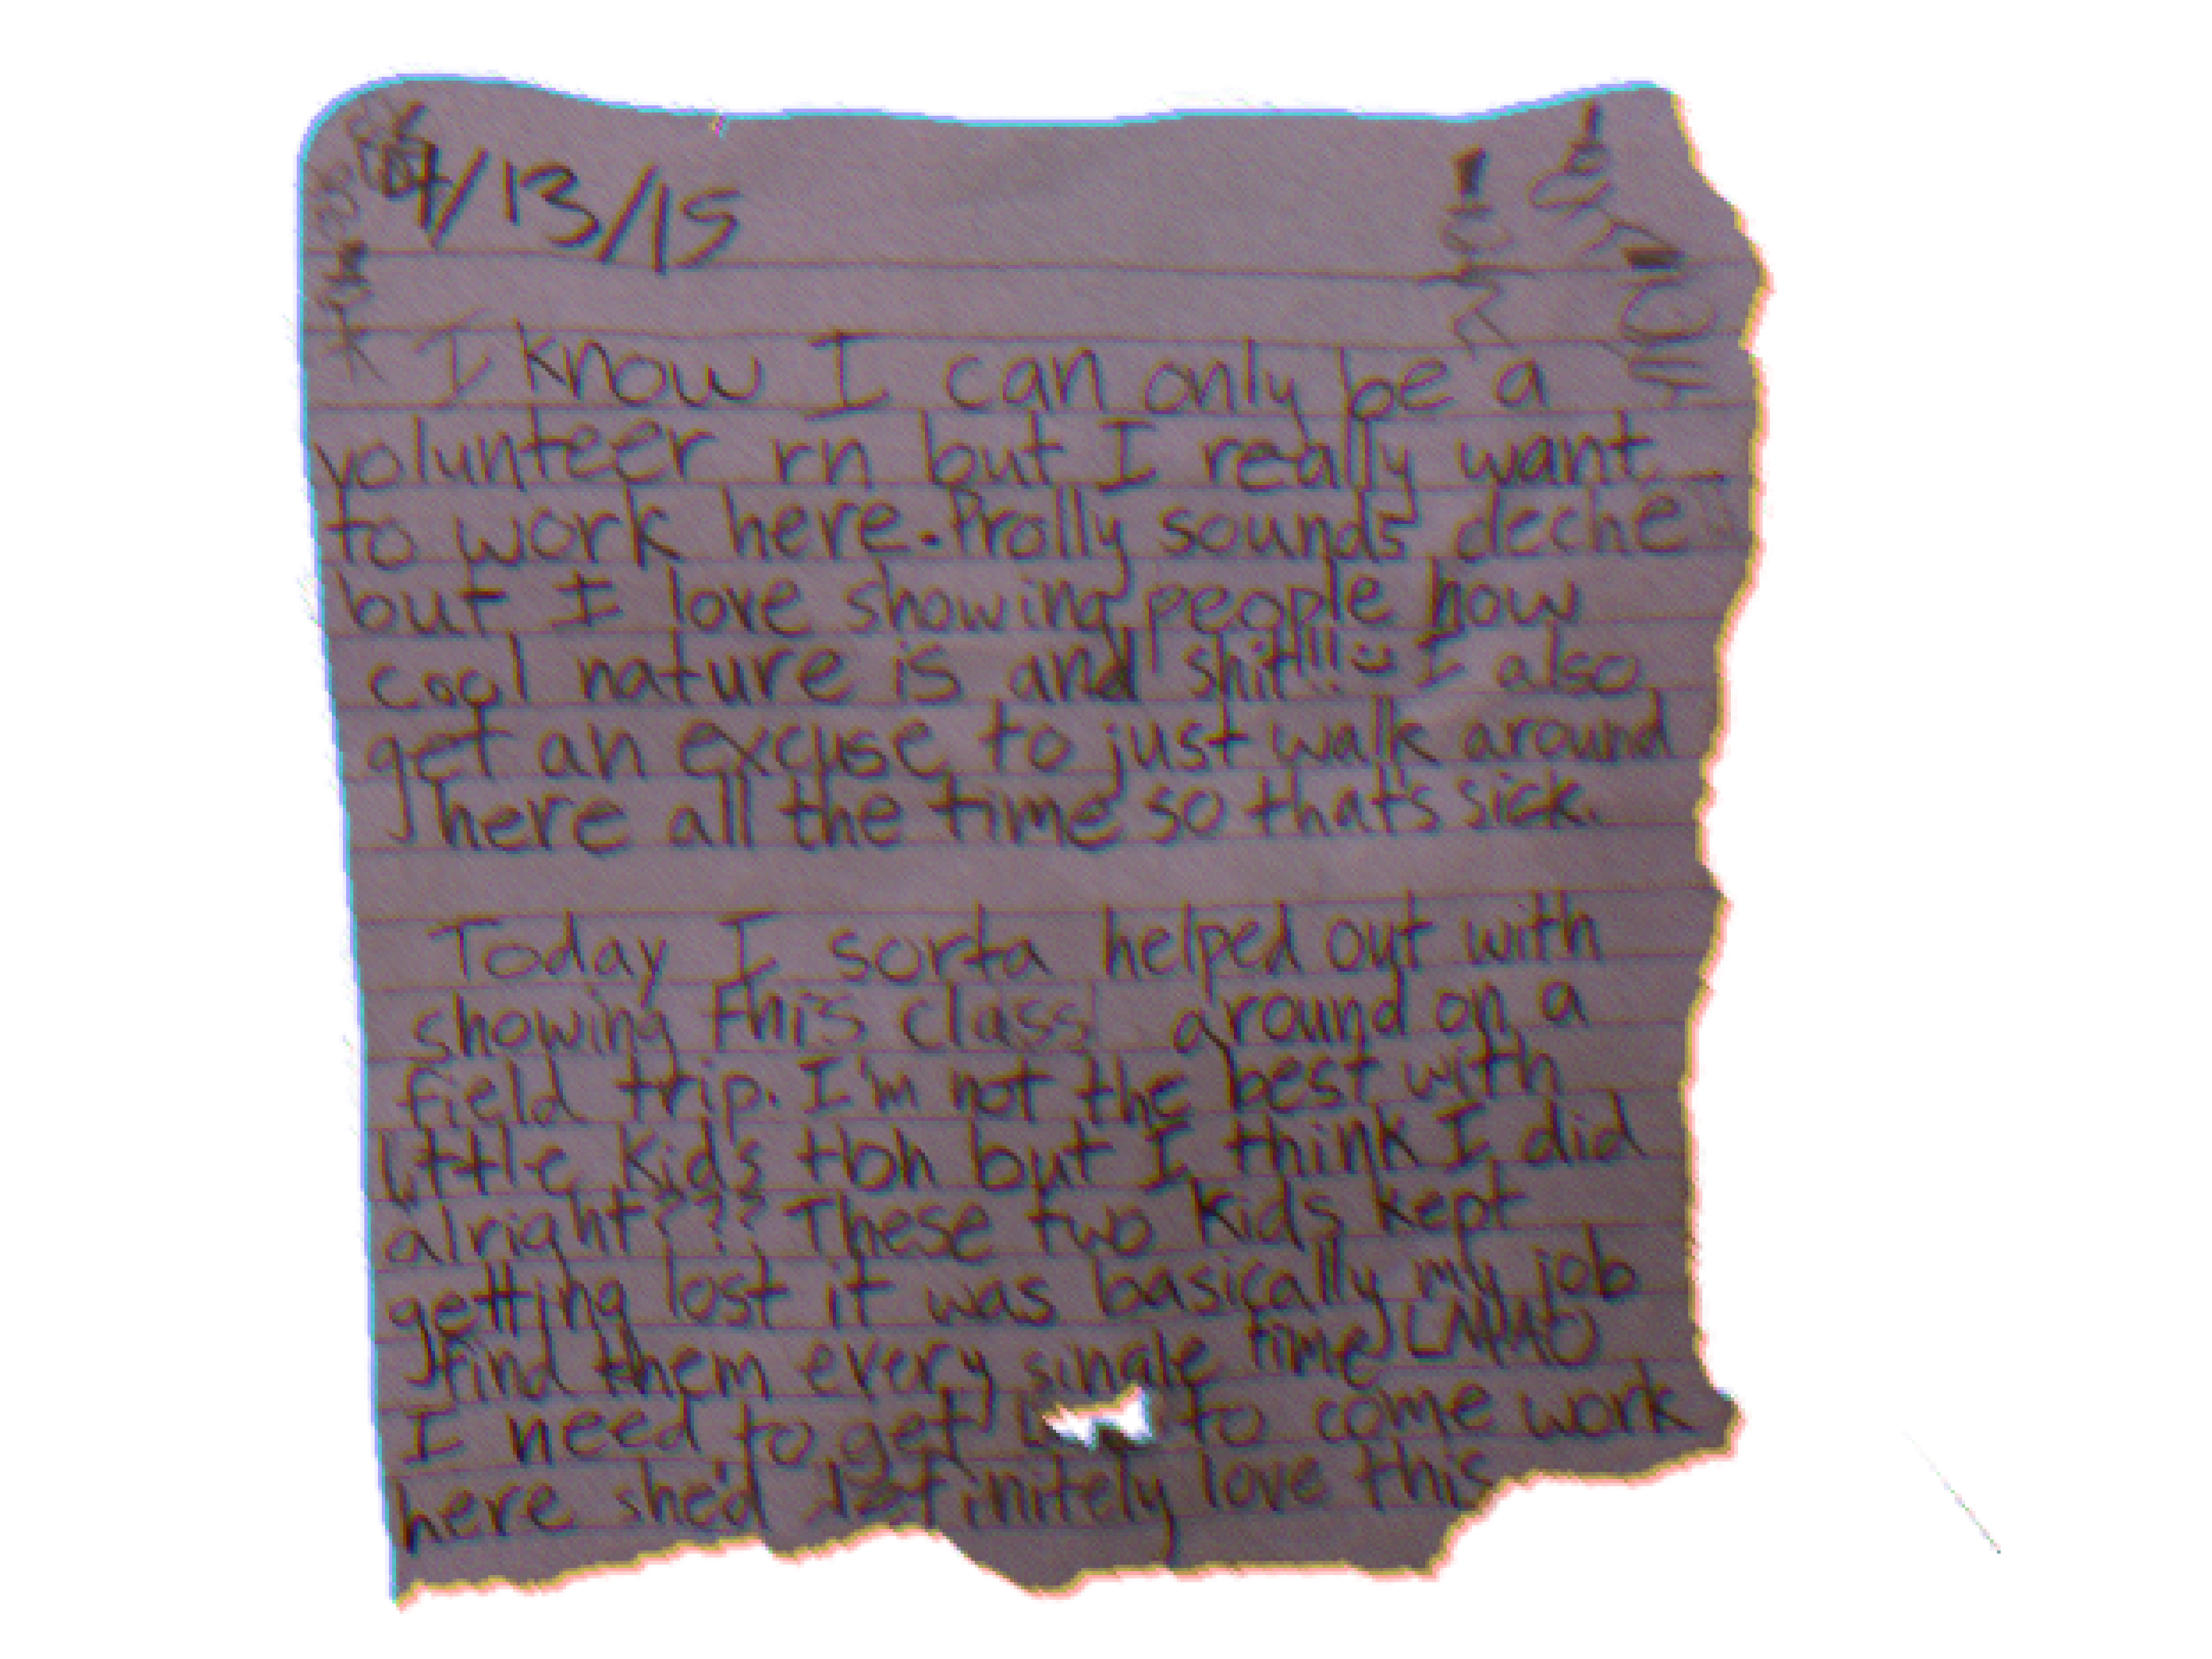 4/13/15
I know I can only be a
volunteer rn but I really want
to work here. Prolly sounds deche
but I love showing people how
cool nature is and shit!!! :) I also
get an excuse to just walk around
here all the time so that's sick.
Today I sorta helped out with
showing this class around on a
field trip. I'm not the best with
little kids tbh but I think I did
alright??? These two kids kept
getting lost it was basically my job
find them every single time LMAO
I need to get to come work
here she'd definitely love this